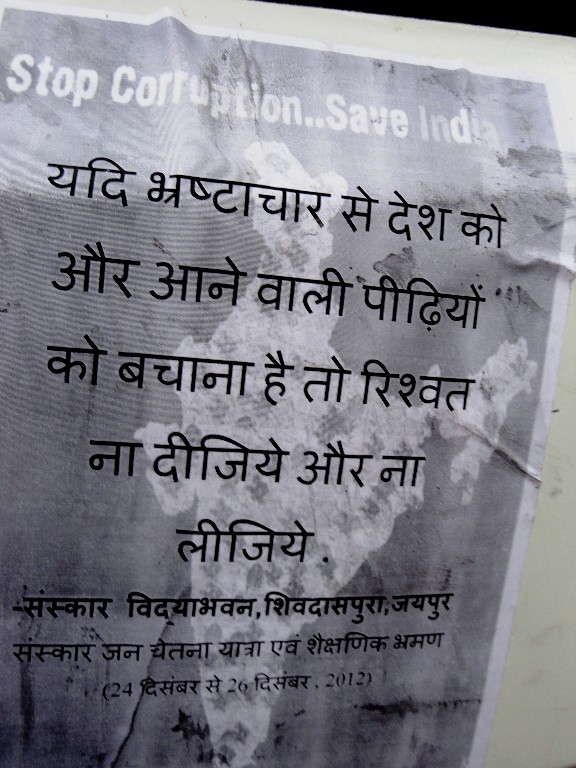 Stop Corruption..Save India
यदि भ्रष्टाचार से देश को
और आने वाली पीढ़ियों
को बचाना है तो रिश्वत
ना दीजिये और ना
लीजिये.
-संस्कार विद्याभवन,शिवदासपुरा,जयपुर
संस्कार जन चेतना यात्रा एवं शैक्षणिक भ्रमण
(24 दिसंबर से 26 दिसंबर , 2012)